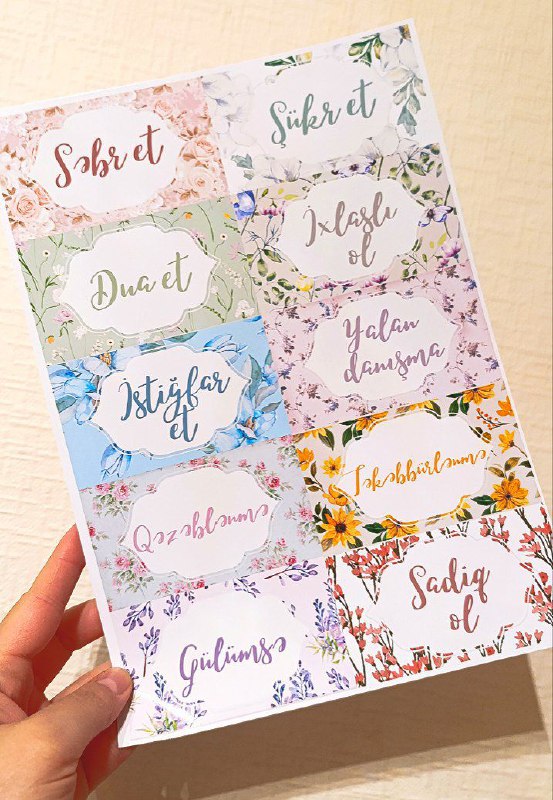 Səbr et
Şükr et
Dua et
İxlaslı
ol
İstiğfar
et
Yalan
danışma
Qəzəblənmə
Təkəbbürlənmə
Gülümsə
Sadiq
ol